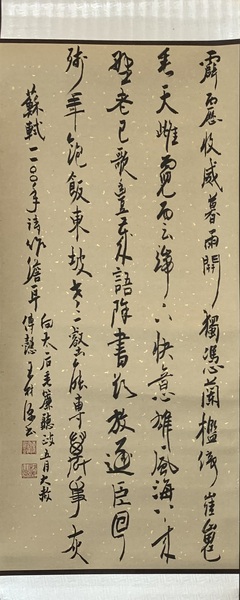 霹靂收威暮雨開獨憑蘭檻倚崔嵬
垂天雌霓雲端下快意雄風海上來
野老已歌豐歲語除書欲放逐臣回
殘年飽飯東坡老一壑能專萬事灰
蘇軾一一〇〇年詩作儋耳
向太后垂簾聽政五月大赦
王